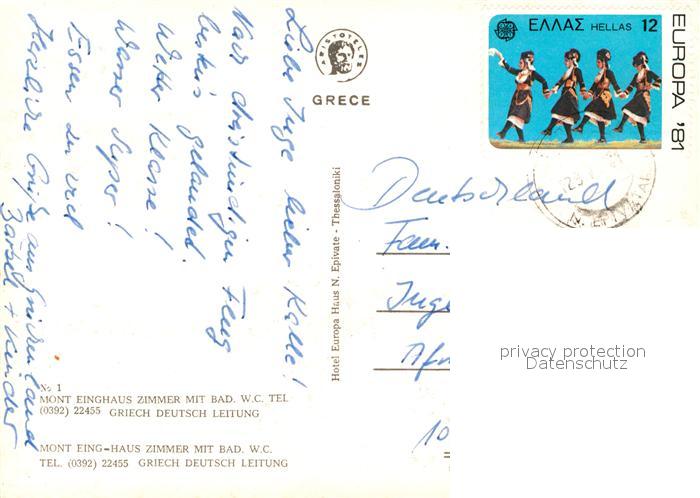 Liebe Inge lieber Kalle!
Nach dreistündigen Flug
gelandet.
Wetter Klasse!
Wasser Super!
Essen zu viel
Herzliche Grüße aus Griechenland
+ Kinder
ARISTOTELES
GRECE
Hotel Europa Haus N. Epivate - Thessaloniki
No 1
MONT EINGHAUS ZIMMER MIT BAD. W.C. TEL
(0392) 22455 GRIECH DEUTSCH LEITUNG
MONT EING-HAUS ZIMMER MIT BAD. W.C.
TEL. (0392) 22455 GRIECH DEUTSCH LEITUNG
ΕΛΛΑΣ HELLAS 12
EUROPA '81
Deutschland
Fam.
Inge
10
privacy protection
Datenschutz